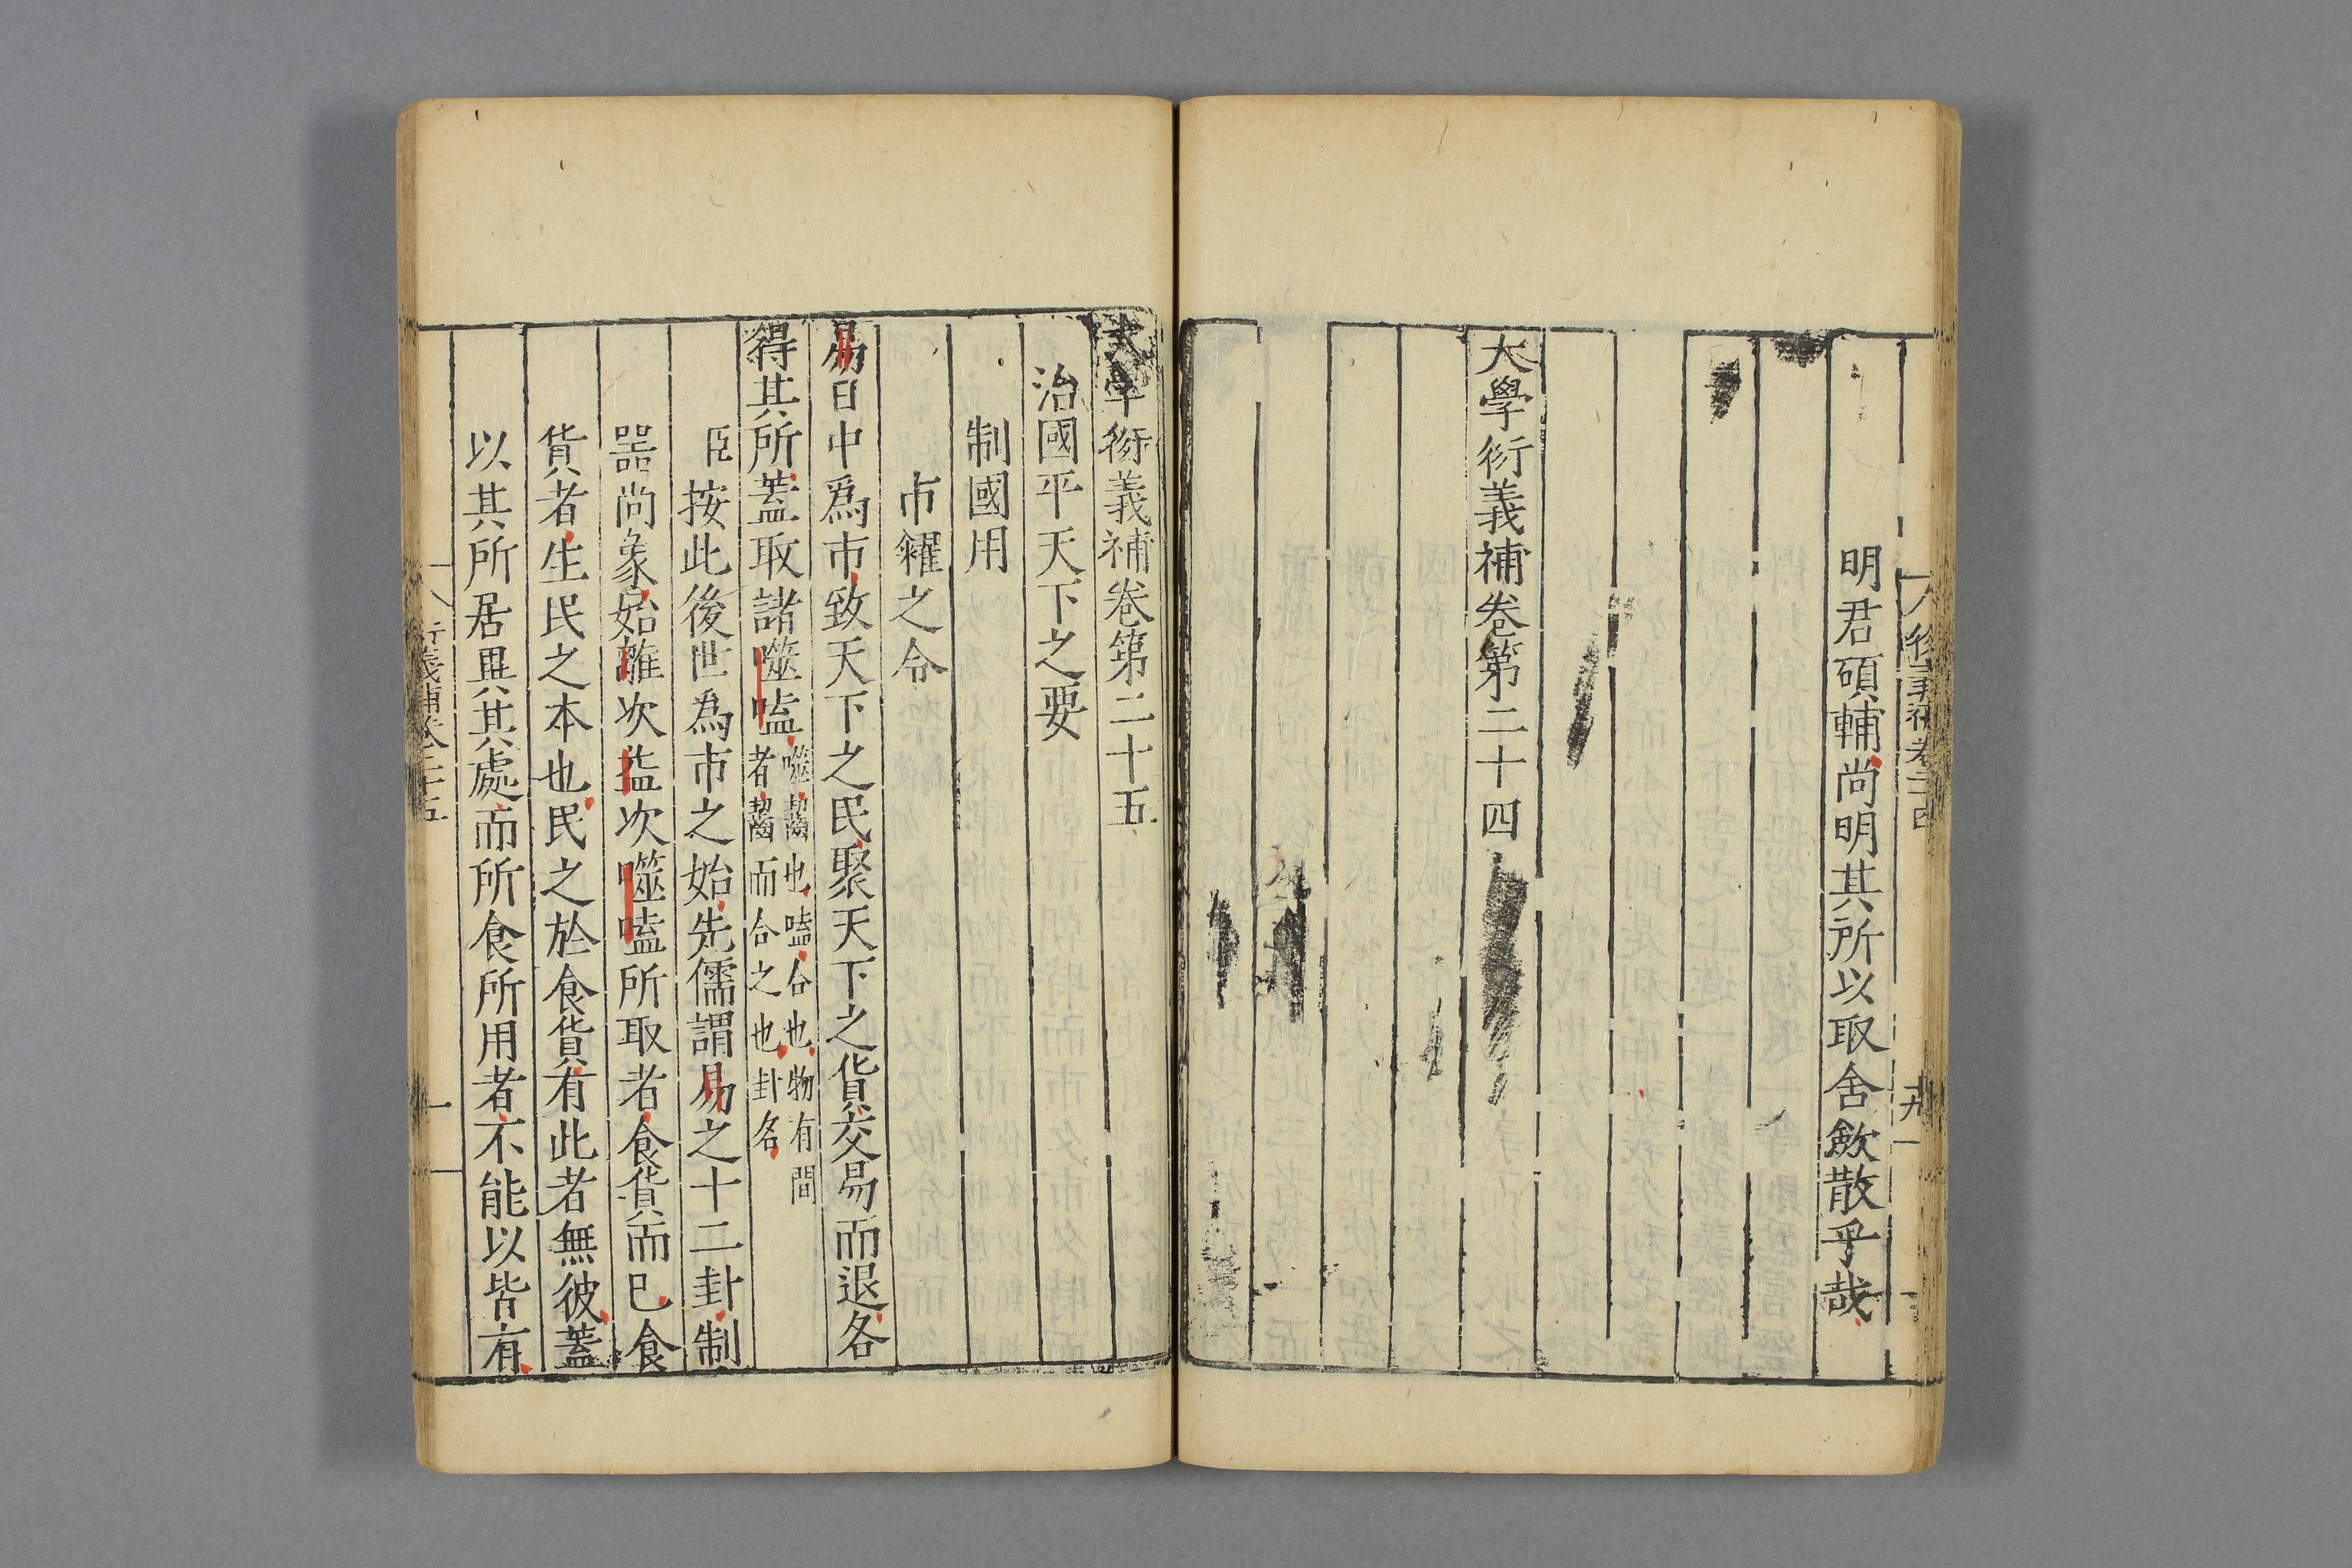 衍義補卷二十四
十九
明君碩輔尚明其所以取舍斂散乎哉
大學衍義補卷第二十四
大學衍義補卷第二十五
治國平天下之要
制國用
市糴之令
易日中爲市致天下之民聚天下之貨交易而退各
得其所蓋取諸噬嗑噬齧也嗑合也物有間
者齧而合之也卦名
臣按此後世爲市之始先儒謂易之十二卦制
器尚象始離次益次噬嗑所取者食貨而已食
貨者生民之本也民之於食貨有此者無彼蓋
以其所居異其處而所食所用者不能以皆有
衍義補卷二十五
一